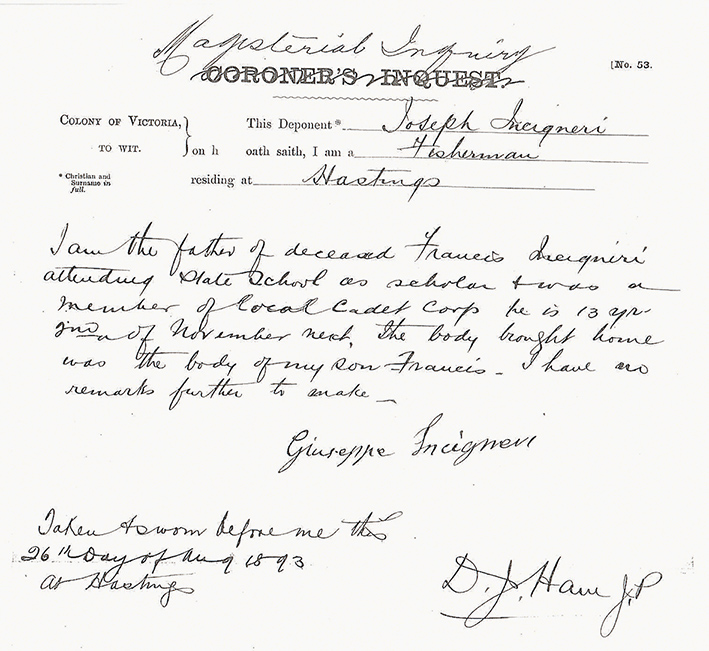 Magisterial Inquiry
CORONER'S INQUEST.
[No. 53.
COLONY OF VICTORIA,
TO WIT.
This Deponent* Joseph Incigneri
on h oath saith, I am a Fisherman
* Christian and Surname in full.
residing at Hastings
I am the father of deceased Francis Incigneri
attending State School as scholar & was a
member of local Cadet Corp he is 13 yrs
of November next. The body brought home
was the body of my son Francis - I have no
remarks further to make -
Giuseppe Incigneri
Taken & sworn before me this
26th Day of Aug 1893
at Hastings
D. J. J.P